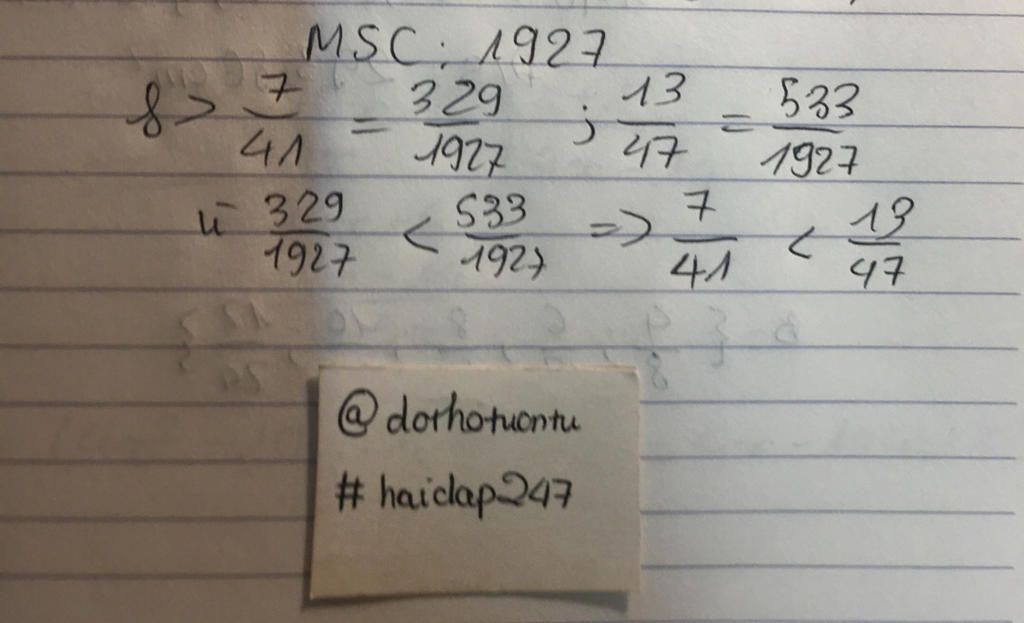 MSC: 1927
7/41 = 329/1927 ; 13/47 = 533/1927
329/1927 < 533/1927 => 7/41 < 13/47
@dorhotuontu
#haidap247